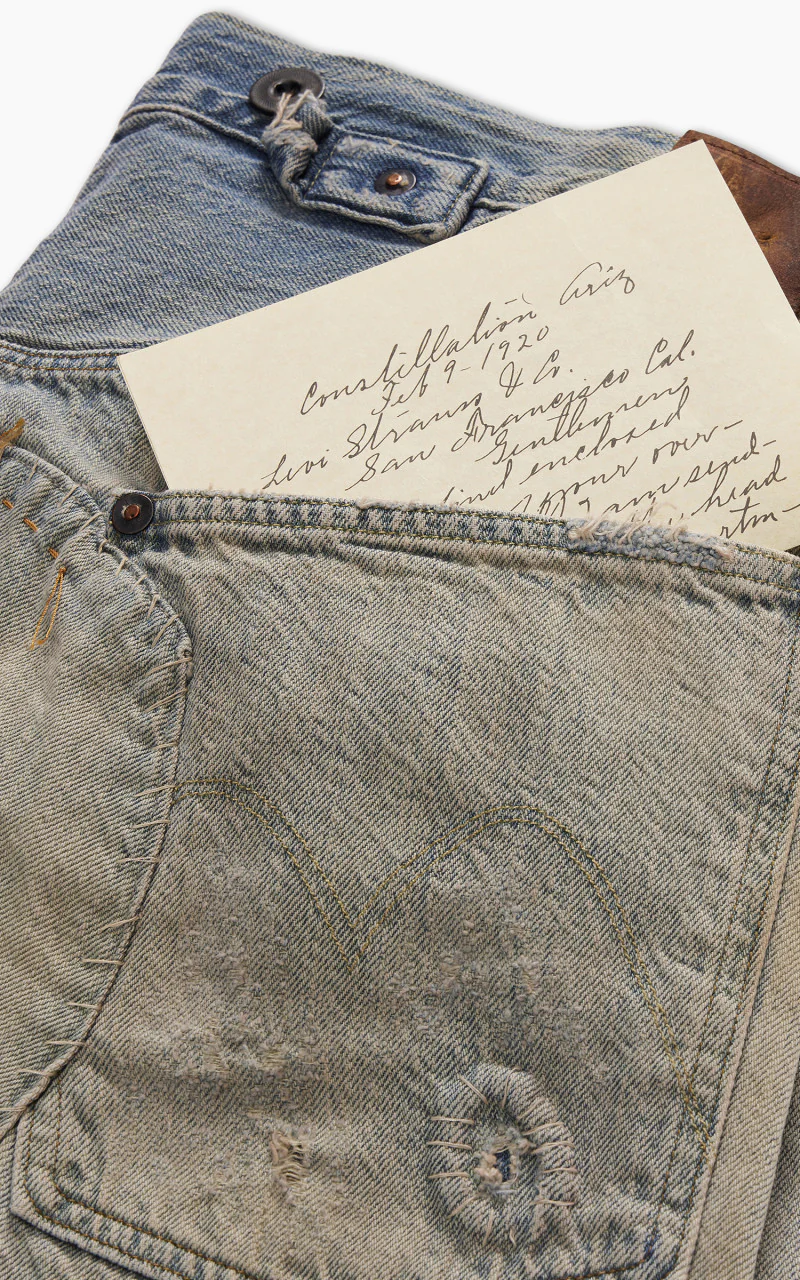 Constellation Ariz
Feb 9-1920
Levi Strauss & Co.
San Francisco Cal.
Gentlemen;
find enclosed
your over-
I am send-
head